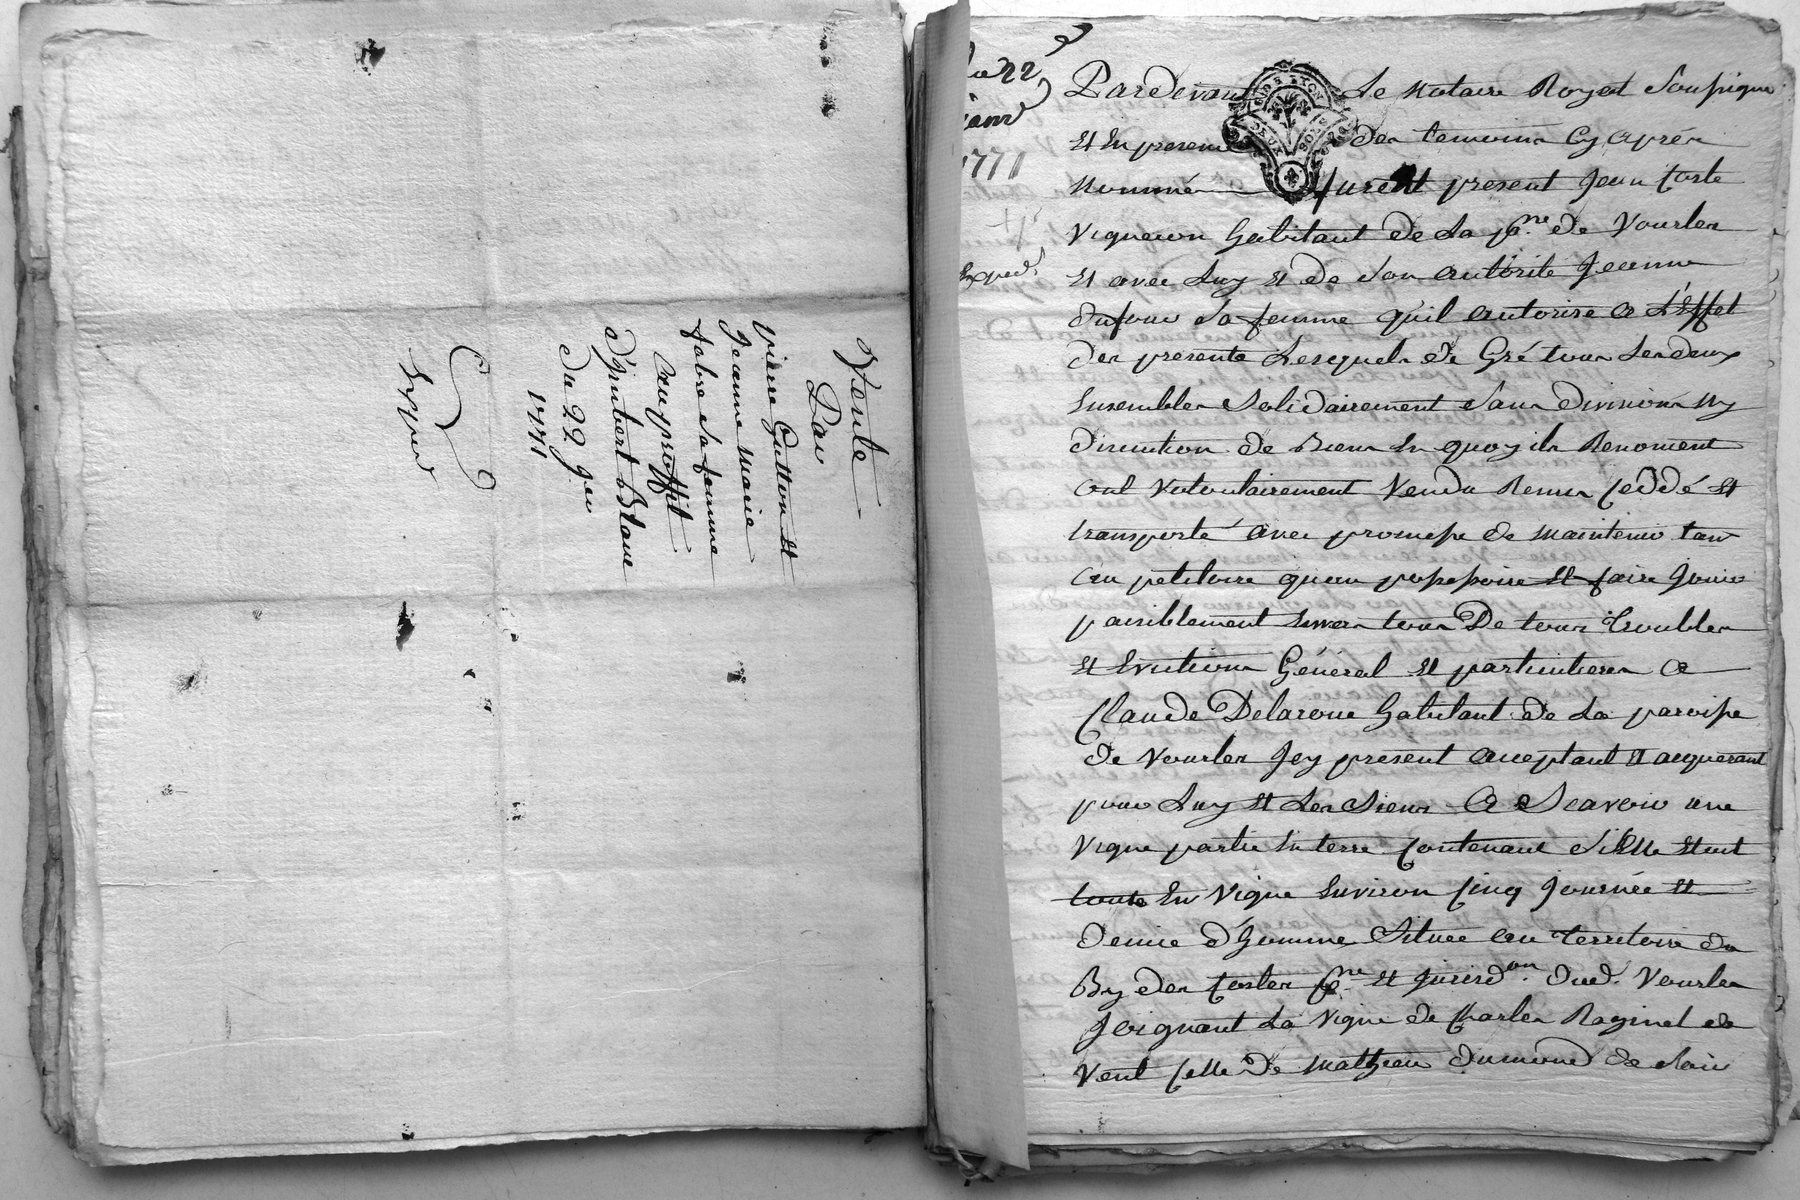 Vente
Par
pierre Gutton et
Jeanne Marie
fabre sa femme
au proffit
d'Ymbert Blanc
du 22 Jer
1771
Exped
Du 22
janv
1771
Exped
Pardevant Le Notaire Royal Soussigne
et En presence des temoins Cy aprés
Nommés furent present Jean Coste
Vigneron habitant de La psse. de Vourles
et avec Luy et de son autorité Jeanne
dufour sa femme quil autorise a L'Effet
des presente Lesquels de Gré tous Les deux
Ensembles Solidairement sans division ny
discution de Biens En quoy ils Renoncent
ont Volontairement Vendu Remis Ceddé et
transporté avec promesse de maintenir tant
au petitoire quau possessoire et faire Jouir
paisiblement Envers tous De tous troubles
et Evictions Général et particuliers a
Claude Delaroue habitant de La paroisse
de Vourles Jcy present acceptant et acquerant
pour Luy et Les Siens a Scavoir une
Vigne partie En terre Contenant si Elle Etoit
toute En Vigne Environ Cinq Journée et
demie d'homme Située au territoire du
By des Costes psse. et Jurisdon. dud. Vourles
Joignant La Vigne de Charles Raginel de
Vent Celle de Mathieu dumond de soir
GD. DE LYON
DEUX SOLS